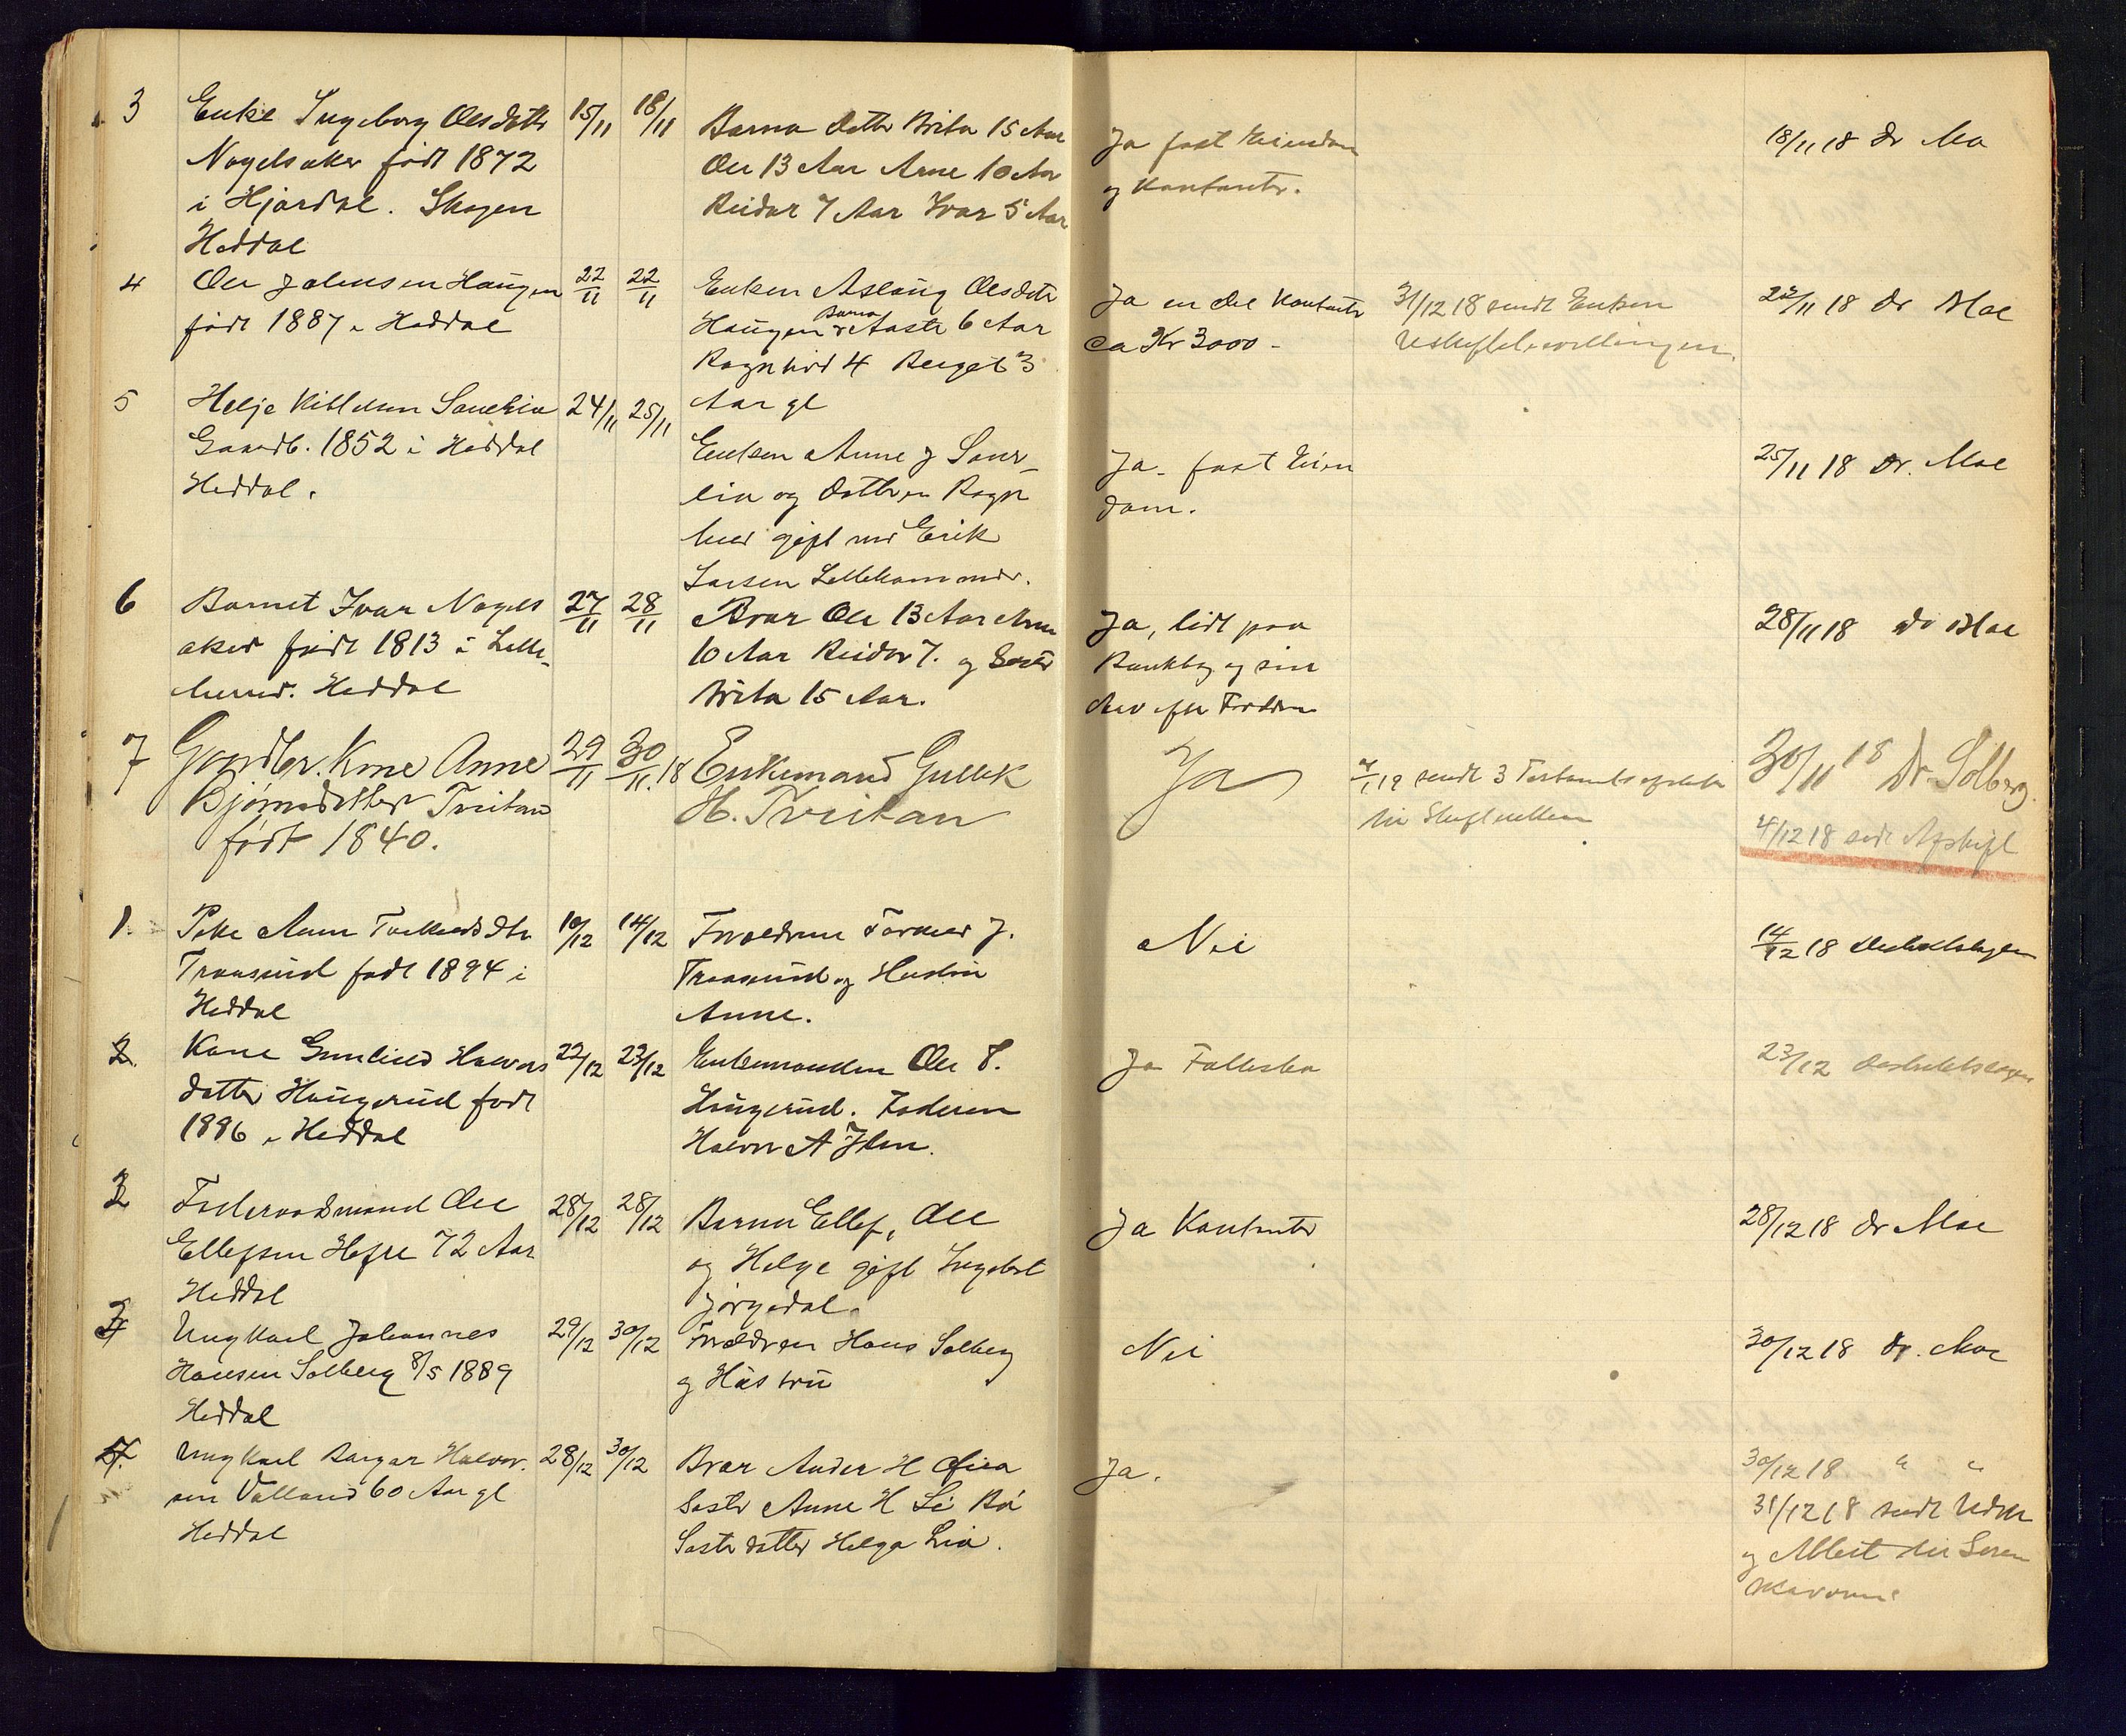 3 Enke Ingeborg Olsdatter 15/11 18/11 Barna datter Brita 15 Aar Ja fast Eiendom 18/11 18 dr Moe
Nagelsaker født 1872 Ole 13 Aar Arne 10 Aar og Kontanter.
i Hjardal. Skogen Reidar 7 Aar Ivar 5 Aar
Heddal
4 Ole Johnsen Haugen 22/11 22/11 Enken Aslaug Olsdatter Ja en del Kontanter 31/12 18 sendt Enken 22/11 18 dr Moe
født 1887 i Heddal Haugen Barna Aaste 6 Aar ca Kr 3000 -
Ragnhild 4 Berget 3
5 Helje Kittelsen 24/11 25/11 Aar gl
Gaardb. 1852 i Heddal Enken Anne J Ja - fast Eien 25/11 18 Dr. Moe
Heddal. lia og datteren Ragn dom.
hild gift med Erik
Larsen Lilleherred.
6 Barnet Ivar Nagels 27/11 28/11 Bror Ole 13 Aar Arne Ja, lidt paa 28/11 18 dr Moe
aker født 1813 i Lille- 10 Aar Reidar 7. og Søster Bankbog og sin
herred. Heddal Brita 15 Aar. Arv efter Forældrene
7 Gaardbr. Kone Anne 29/11 30/11.18 Enkemand Gullik Ja 4/1 19 sendt 3 Testamentsafskrifter 30/11 18 Dr Solberg.
Bjørnsdatter Tveitan H. Tveitan til Skifteretten 4/12 18 sendt Afskift
født 1840.
1. Pike Anne 10/12 14/12 Forældrene J. Nei 14/12 18 Distriktslægen
født 1894 i og Hustru
Heddal Anne.
2. Kone Gunhild Halvors 22/12 23/12 Enkemanden Ole T. Ja Fællesbo 23/12 Distriktslægen
datter Haugerud født Haugerud. Faderen
1896 i Heddal Halvor A
3 Foderaadsmand Ole 28/12 28/12 Barna Ellef, Ole Ja Kontanter 28/12 18 dr Moe
Ellefsen Hefre 72 Aar og Helge gift
Heddal
4 Ungkarl Johannes 29/12 30/12 Forældren Hans Solberg Nei 30/12 18 dr. Moe
Hansen Solberg 8/5 1889 og Hustru
Heddal
5. Ungkarl Halvor. 28/12 30/12 Bror Anders H Ja. 30/12 18 " "
sen 60 Aar gl Søster Anne H Li Bø 31/12 18 sendt
Heddal Søster datter Helga Lia. og Attest til Soren